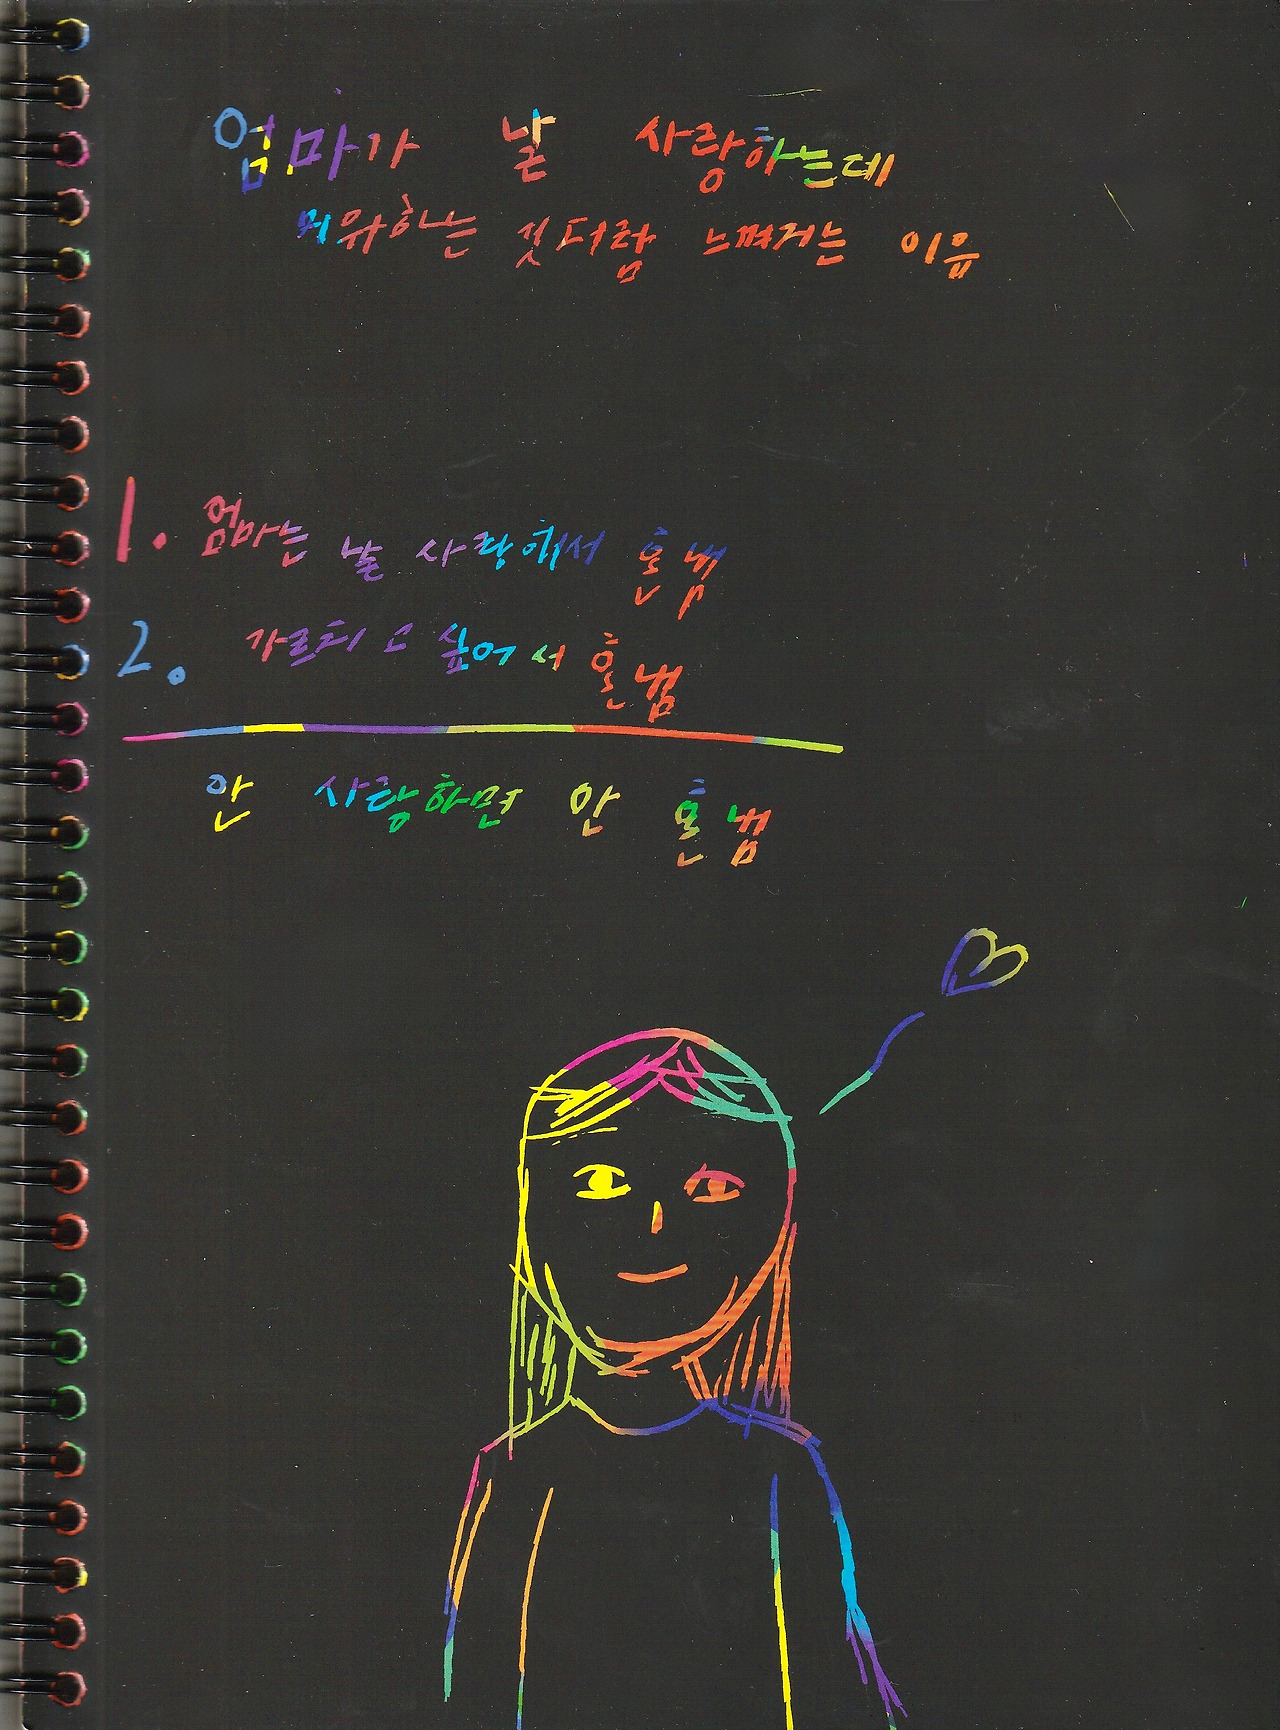 엄마가 날 사랑하는데
미워하는 것처럼 느껴지는 이유
1. 엄마는 날 사랑해서 혼냄
2. 가르치고 싶어서 혼냄
안 사랑하면 안 혼냄